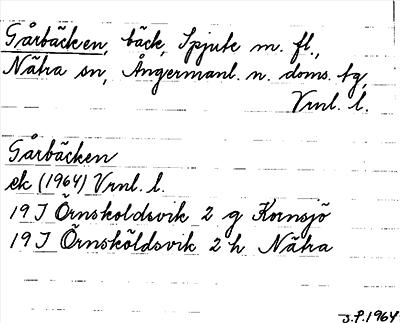 Gårbäcken, bäck, Spjute m. fl.,
Nätra sn, Ångermanl. n. doms. tg,
Vrnl. l.
Gårbäcken
ek (1964) Vrnl. l.
19 J Örnsköldsvik 2 g Kornsjö
19 J Örnsköldsvik 2 h Nätra
J.P. 1964